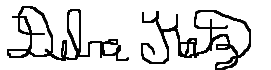 Debra Katz